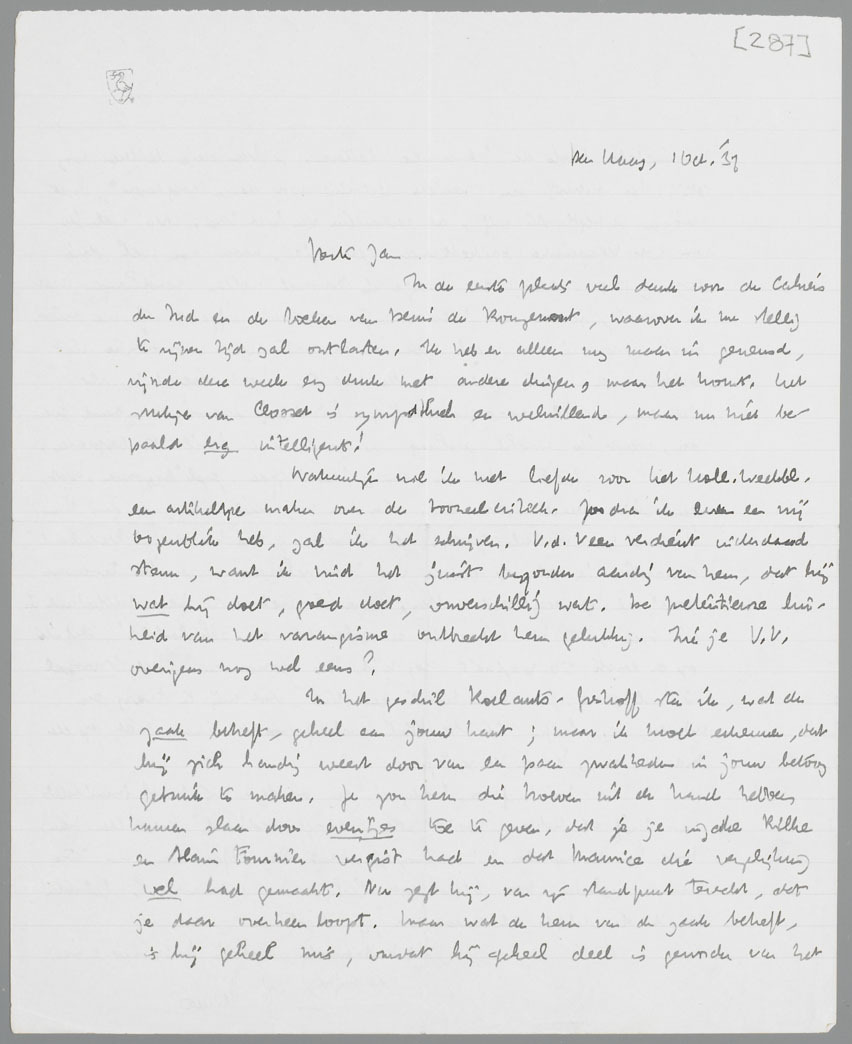 [287]
Den Haag, 1 Oct. '37
Beste Jan
In de eerste plaats veel dank voor de Cahiers
du Sud en de boeken van Denis de Rougemont, waarover ik me stellig
te zijner tijd zal ontlasten. Ik heb er alleen nog maar in geneusd,
zijnde deze week erg druk met andere dingen, maar het komt. Het
stukje van Closset is sympathiek en welwillend, maar nu niet be-
paald erg intelligent!
Natuurlijk wil ik met liefde voor het Holl. Weekbl.
een artikeltje maken over de tooneelcritiek. Zoodra ik even een vrij
oogenblik heb, zal ik het schrijven. V.d. Veen verdient inderdaad
steun, want ik vind het juist bijzonder aardig van hem, dat hij
wat hij doet, goed doet, onverschillig wat. De pretentieuze lui-
heid van het ontbreekt hem gelukkig. Zie je V.V.
overigens nog wel eens?
In het geschil Roelants-Greshoff sta ik, wat de
zaak betreft, geheel aan jouw kant; maar ik moet erkennen, dat
hij zich handig weert door van een paar zwakheden in jouw betoog
gebruik te maken. Je zou hem die troeven uit de hand hebben
kunnen slaan door eventjes toe te geven, dat je je inzake Rilke
en Alain Fournier vergist had en dat Maurice die vergelijking
wel had gemaakt. Nu zegt hij, van zijn standpunt terecht, dat
je daar overheen loopt. Maar wat de kern van de zaak betreft,
is hij geheel mis, omdat hij geheel deel is geworden van het